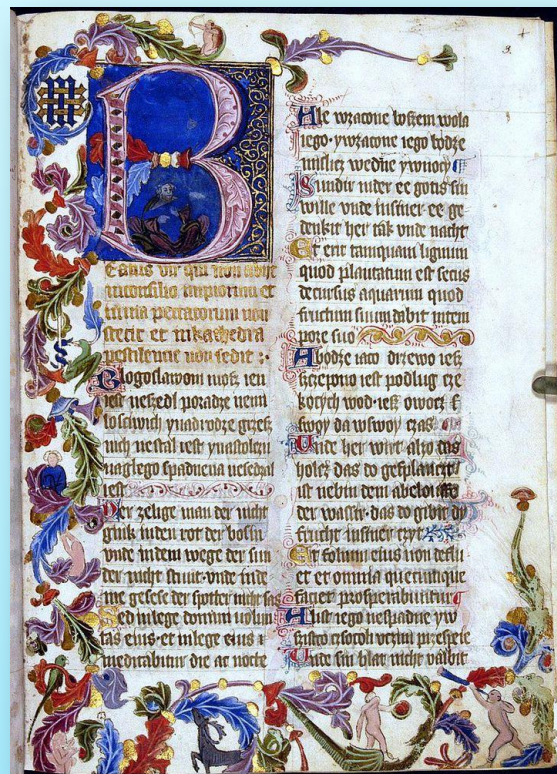 B
eatus vir qui non abiit
in consilio impiorum et
in via peccatorum non
stetit et in kathedra
pestilencie non sedit :.
Blogoslawoni møsz ien
iest neszedl poradze nemi
losciwich ynadrodze grzesz
nich nestal iest ynastolcu
naglego spadnena nesedzal
iest
Der zelige man der nicht
gink in den rot der bosin
vnde in dem wege der sun
der nicht stunt·vnde in de
me gesese der spotter nicht sas
Sed in lege domini volun
tas eius·et in lege eius
meditabitur die ac nocte
Ale wzacone boszem wola
iego·ywzacone iego bødze
mislicz wedne ywnocy
Sundir in der ee gotis sin
wille vnde in siner ee ge
denkit her tak vnde nacht
Et erit tanquam lignum
quod plantatum est secus
decursus aquarum quod
fructum suum dabit in tem
pore suo
A bødze iaco drzewo iesz
szczepono iest podlug cze
køcych wod·iesz owocz
swoy da wswoy czas
Vnde her wirt alzo das
holcz das do gesplanczit
ist nebin dem abelouffe
der wasser·das do gibit di
fruchte in siner czyt
Et folium eius non deflu
et et omnia quecunque
faciet prosperabuntur
A list iego nespadne yw
szistko czsocoli vczini przespeie
Vnde sin blat nicht valbit